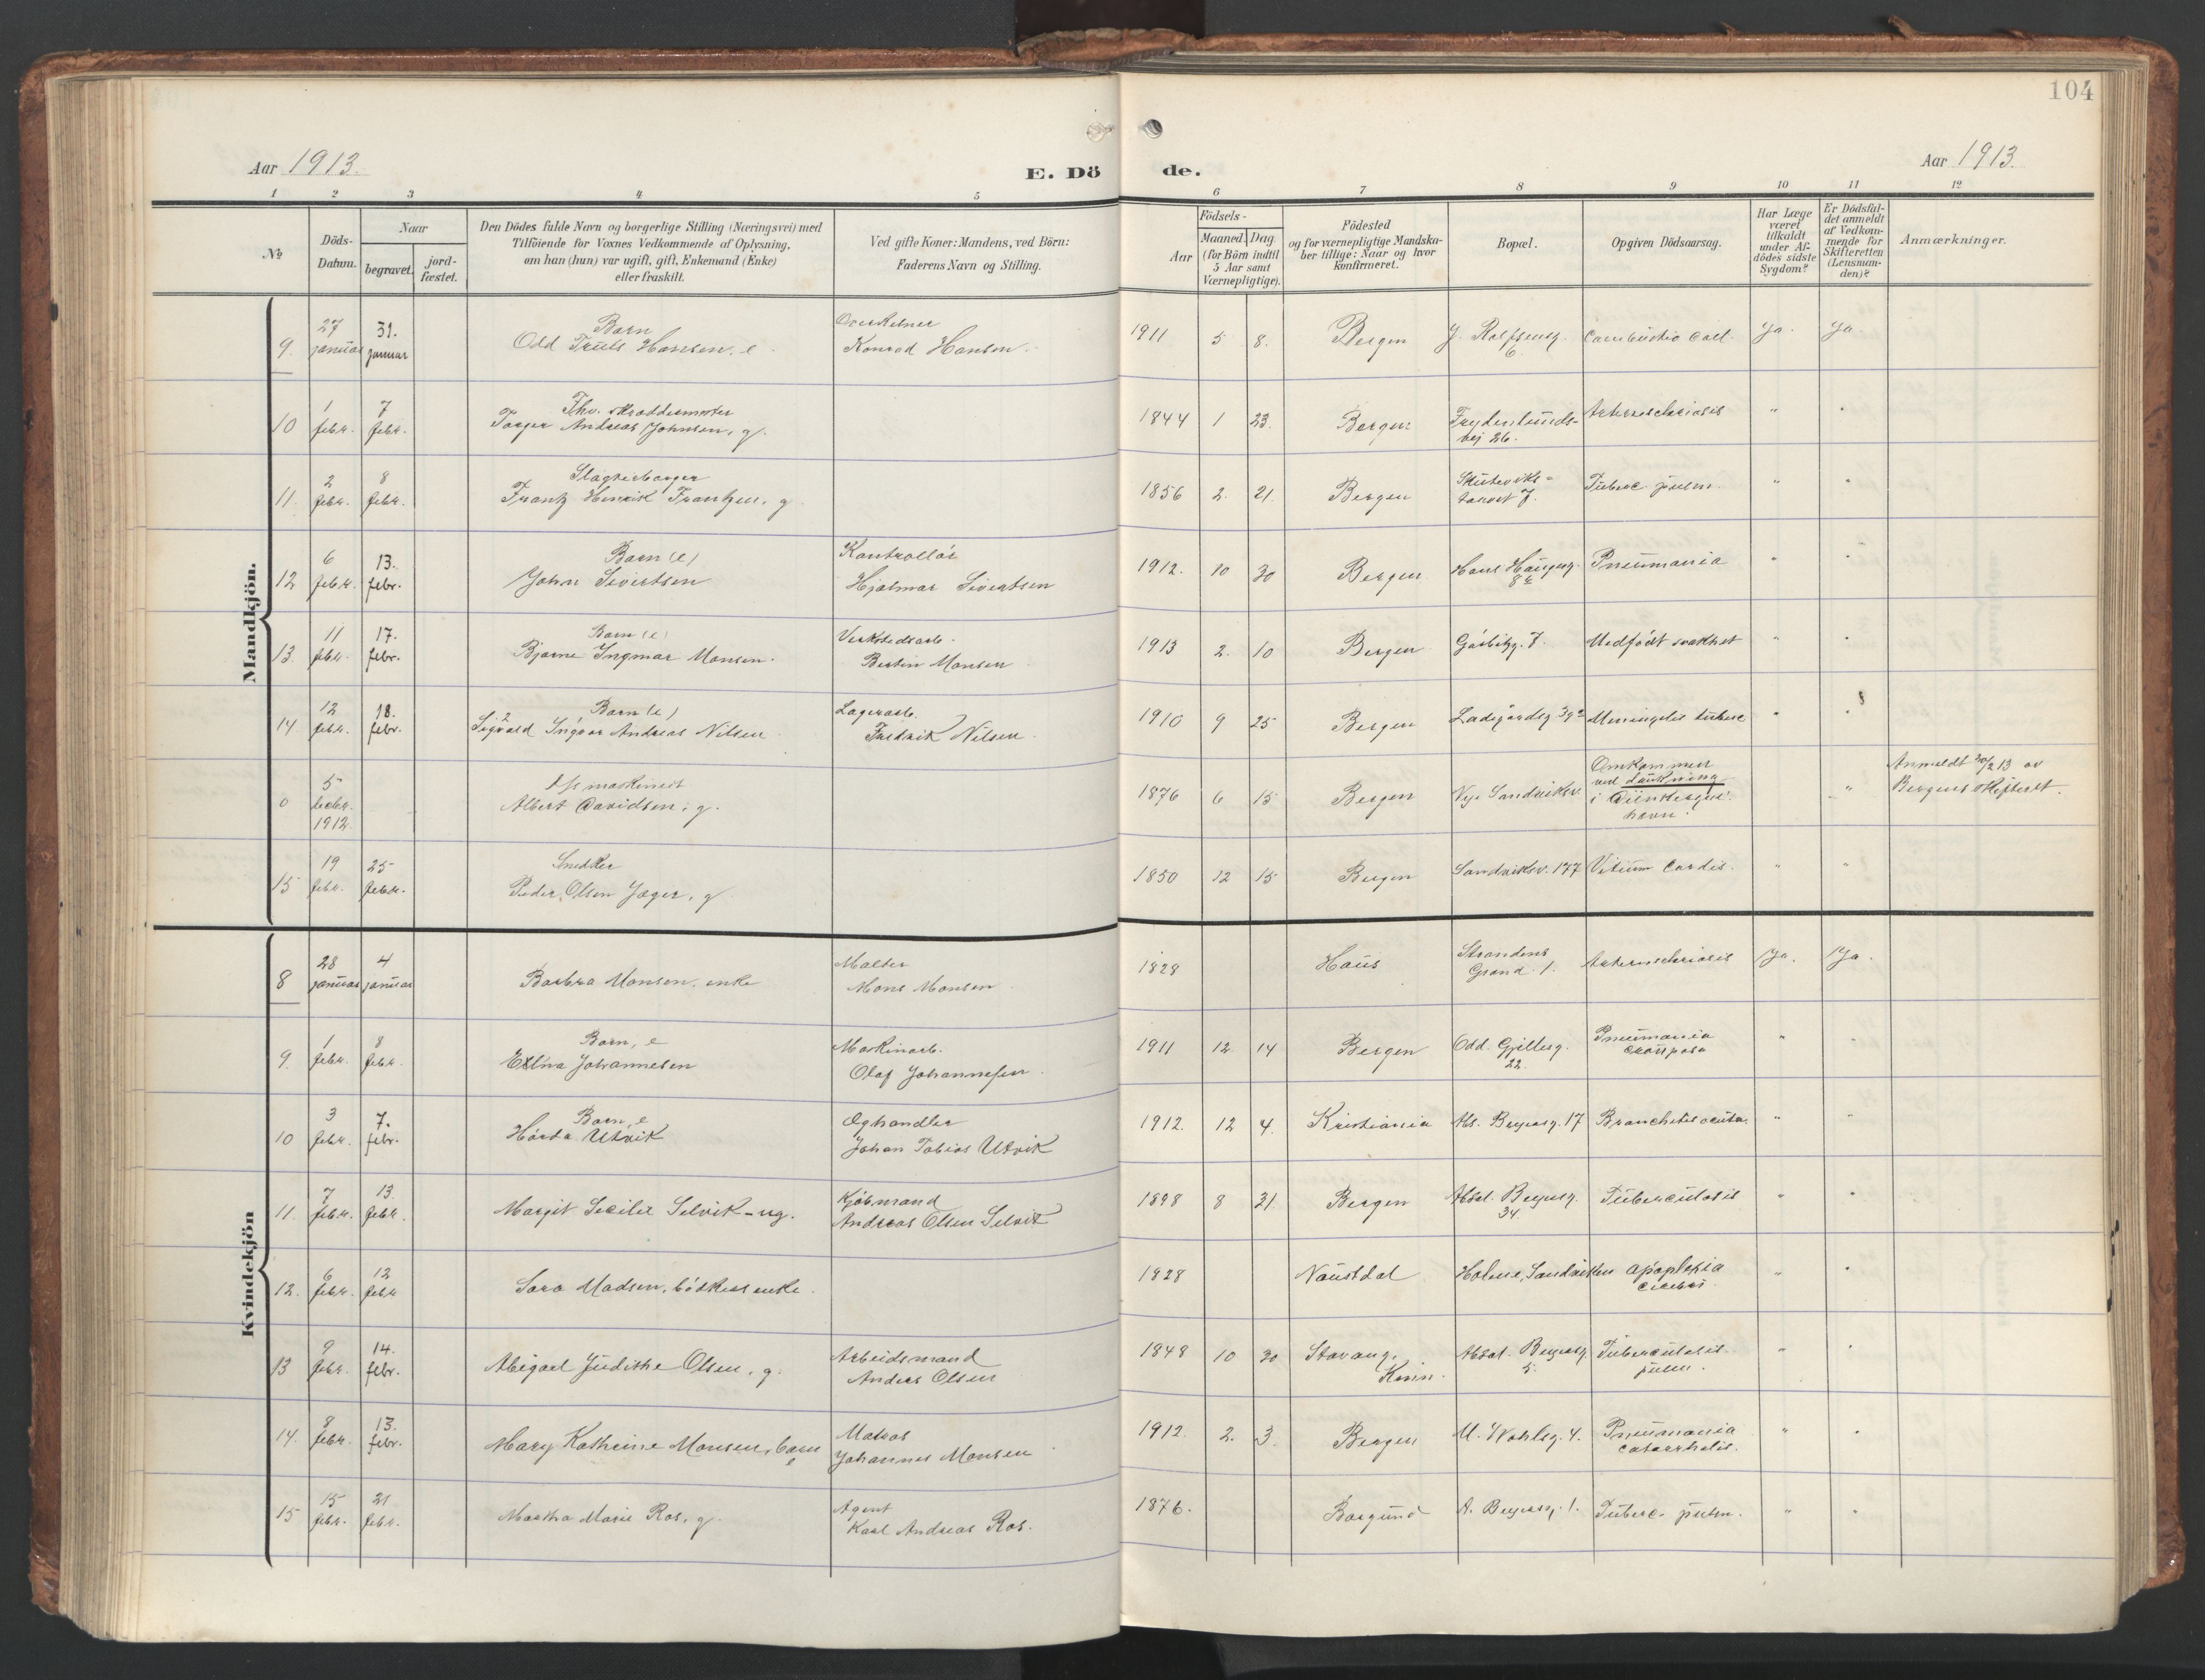 104
Aar 1913.
E. Dö
de.
Aar 1913.
1 2 3 4 5
6 7 8 9 10 11 12
№
Döds-Datum.
Naar
begravet.
jord-fæstet.
Den Dödes fulde Navn og borgerlige Stilling (Næringsvei) med
Tilföiende for Voxnes Vedkommende af Oplysning,
om han (hun) var ugift, gift, Enkemand (Enke)
eller fraskilt.
Ved gifte Koner: Mandens, ved Börn:
Faderens Navn og Stilling.
Födsels-
Aar
Maaned. Dag
(for Börn indtil
5 Aar samt
Værnepligtige).
Födested
og for værnepligtige Mandska-
ber tillige: Naar og hvor
Konfirmeret.
Bopæl.
Opgiven Dödsaarsag.
Har Læge
været
tilkaldt
under Af-
dödes sidste
Sygdom?
Er Dödsfal-
det anmeldt
af Vedkom-
mende for
Skifteretten
(Lensman-
den)?
Anmærkninger.
Mandkjön.
9. 27 januar 31. januar Barn Odd Truls Hansen, e. Overkelner Konrad Hansen. 1911 5 8. Bergen J. Rolfsensg. 6. Combustio Ja. Ja.
10 1 febr. 7 febr. Fhv. skræddermester Torger Andreas Johnsen, g. 1844 1 23. Bergen Frydenlunds-vej 26. " "
11. 2 febr. 8 febr. Slagterborger Frantz Henrik Frantzen, g. 1856 2. 21. Bergen Skuteviks-torvet 7. Tuberc. pulm. " "
12 6 febr. 13. febr. Barn (e) John Sivertsen Kontrollør Hjalmar Sivertsen 1912. 10 30 Bergen Hans Haugesg. Pneumonia " "
13. 11 febr. 17. febr. Barn (e) Bjarne Ingmar Monsen. Verkstedsarb. Bertin Monsen 1913 2. 10 Bergen 7. Medfødt svakhet " "
14. 12 febr. 18. febr. Barn (e) Sigvald Ingvar Andreas Nilsen. Lagerarb. Fredrik Nilsen. 1910 9 25 Bergen Ladegårdsg. 39 Meningitis tuberc " "
0 5 1912. maskinist Albert Davidsen, g. 1876 6 15 Bergen Nye Sandviksv. Omkommen ved drukning i Dünkerque havn. " Anmeldt 20/2 13 av Bergens skifteret.
15 19 febr. 25 febr. Snedker Peder Olsen Jæger, g. 1850 12 15 Bergen Sandviksv. 177 Vitium Cordis. " "
Kvindekjön
8 28 januar 4 januar Barbra Monsen, enke Malter Mons Monsen 1828 Haus Strandens Grand. 1. Ja. Ja.
9. 1 febr. 8 febr. Barn, e Johannesen Maskinarb. Olaf Johannesen. 1911 12. 14 Bergen Odd. Gjillesg. 22. Pneumonia " "
10 3 febr. 7. febr. Barn, e Hørda Utvik Johan Tobias Utvik 1912. 12 4. Kristiania Abs. Beyersg. 17 Bronchitis acuta. " "
11. 7 febr. 13. febr. Margit Secilie Selvik - ug. Kjøbmand Andreas Olsen Selvik 1898 8 21. Bergen Absal. Beyersg. 34. Tuberculosis " "
12. 6 febr. 12 febr Sara Madsen, bødkers enke. 1828 Naustdal Holme, Sandviken apoplexia cerebri " "
13 9 febr. 14. febr. Abigael Judithe Olsen, g. Arbeidsmand Anders Olsen 1848 10 30 Stavang, Kinn. Absal. Beyersg 5. Tuberculosis pulm. " "
14. 8 febr. 13. febr. Mary Kathrine Monsen, barn e Matros Johannes Monsen 1912. 2. 3. Bergen M. Wahlsg. 4. Pneumonia catarrhalis. " "
15 15 febr. 21 febr. Martha Marie Ros, g. Agent Karl Andreas Ros. 1876. Borgund A. Beyersg. 1. Tuberc. pulm. " "